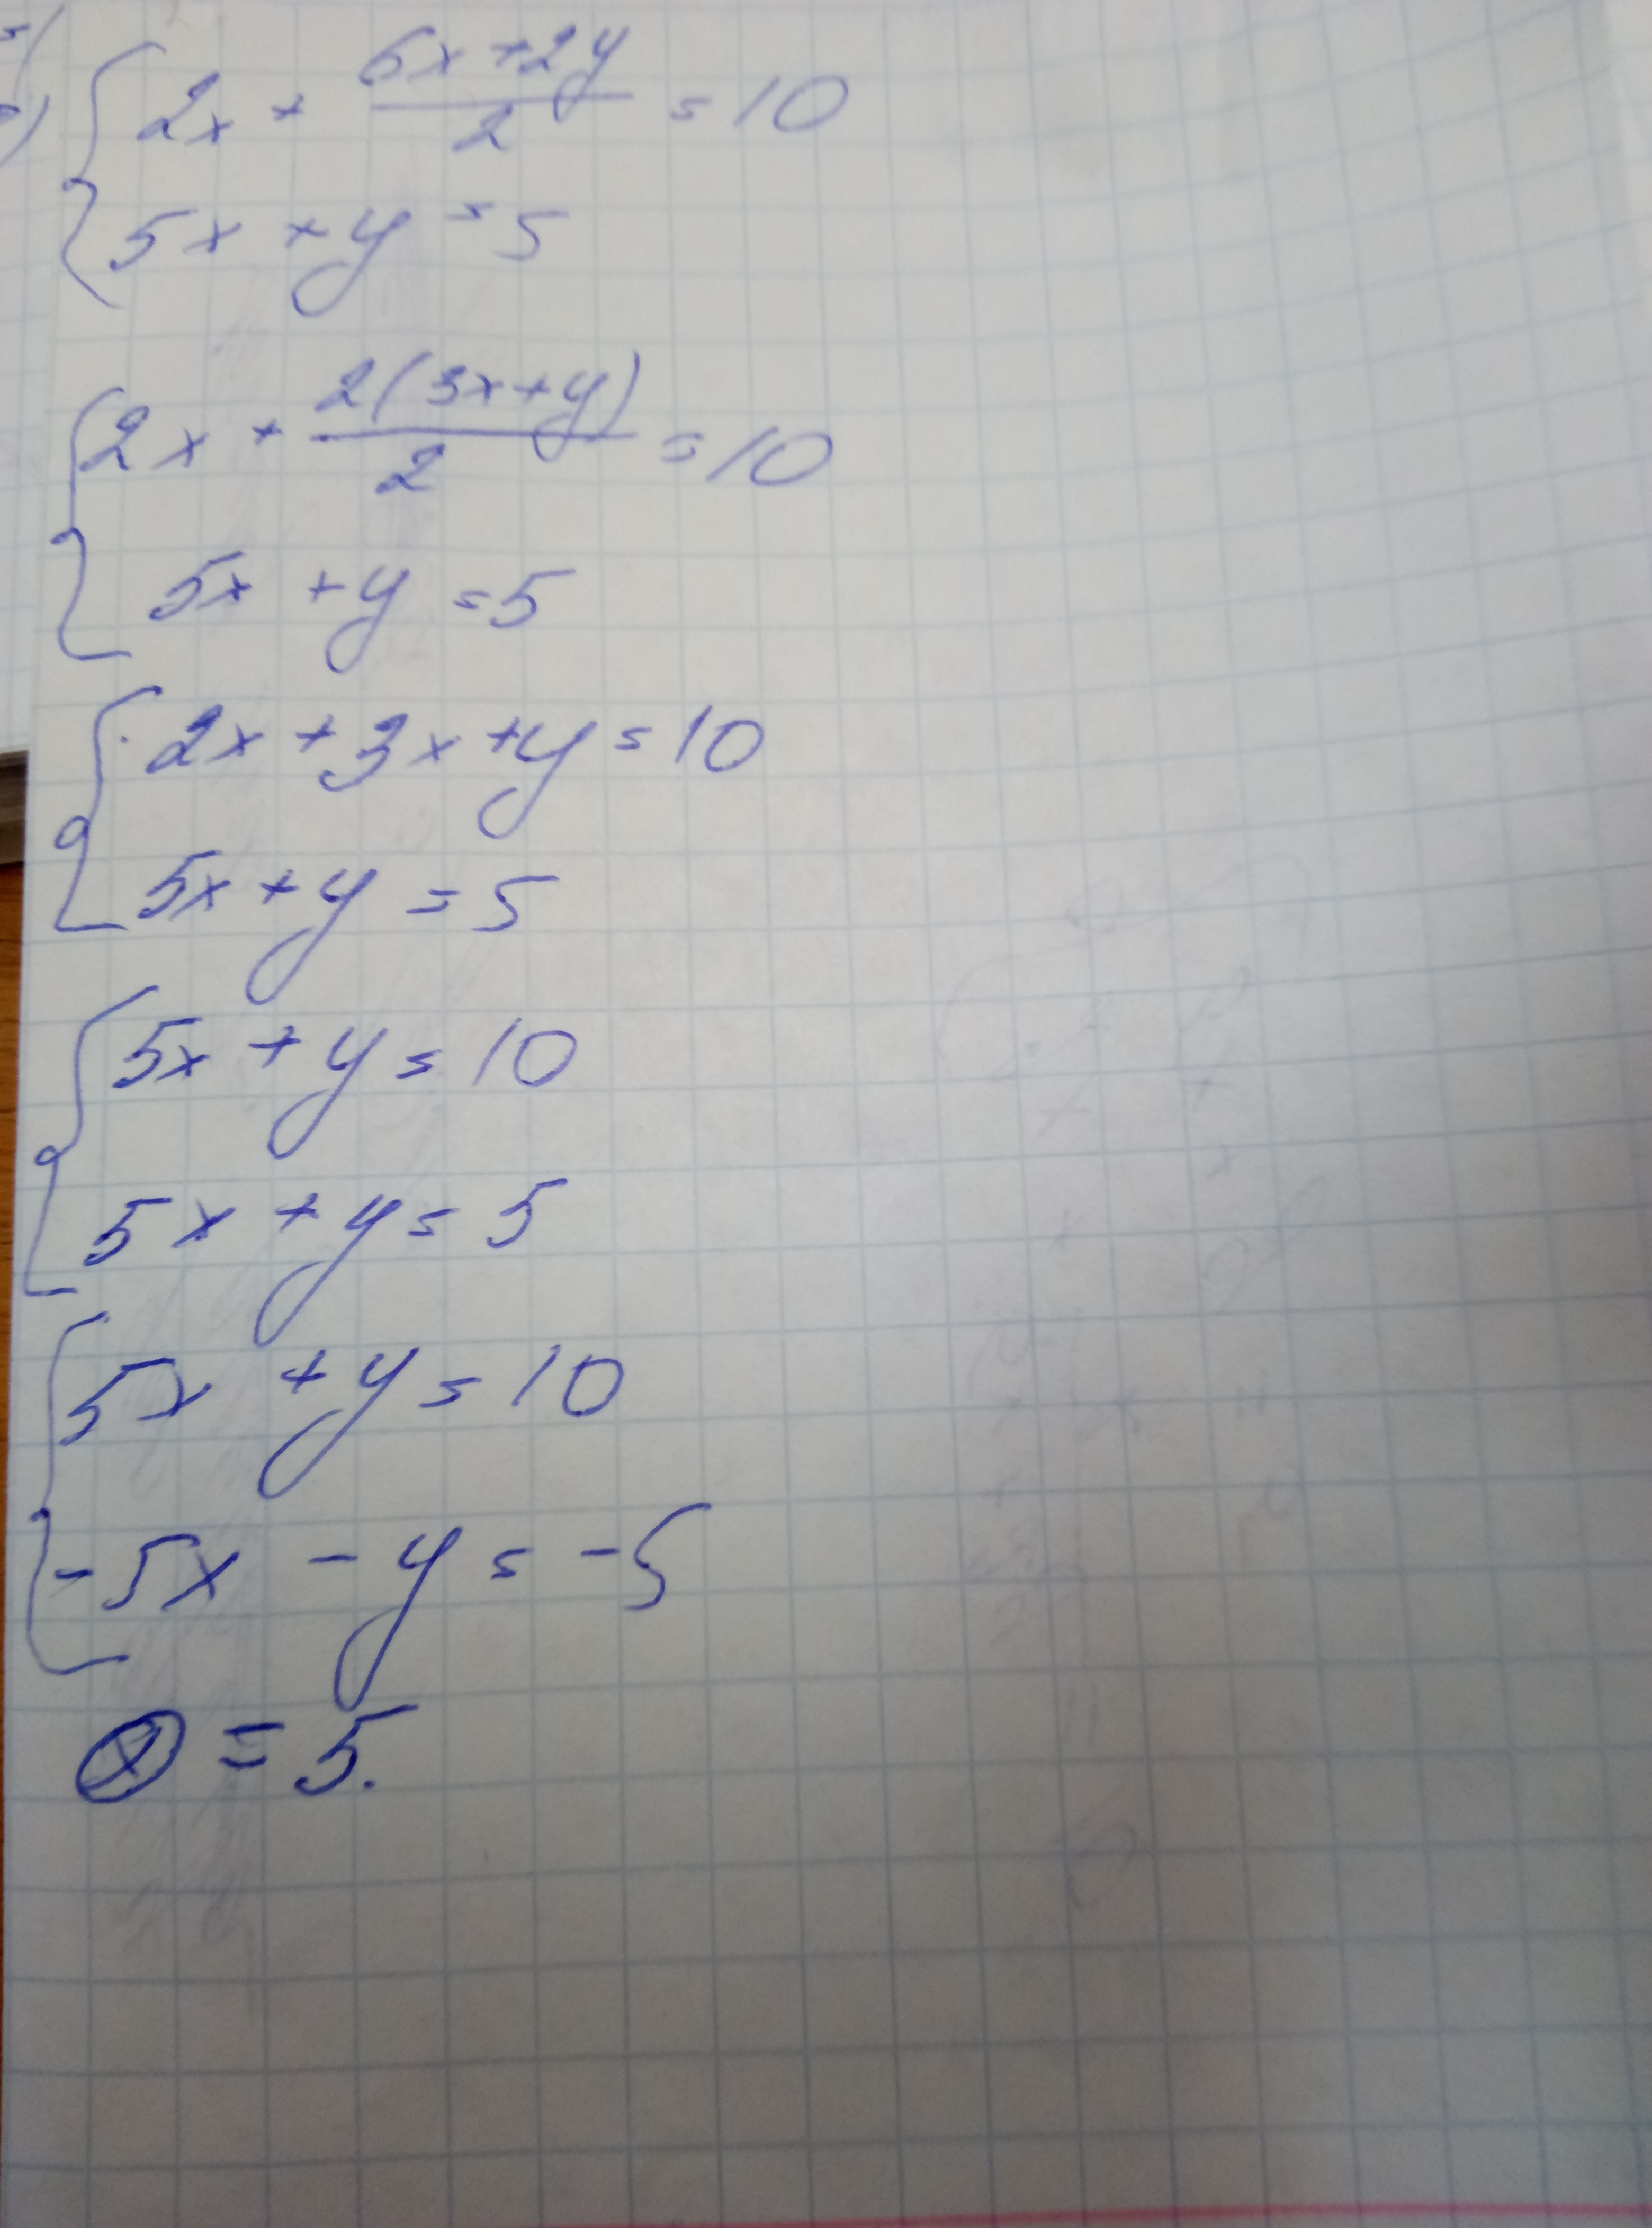 2x + (6x + 2y)/2 = 10
5x + y = 5
2x + 2(3x+y)/2 = 10
5x + y = 5
2x + 3x + y = 10
5x + y = 5
5x + y = 10
5x + y = 5
5x + y = 10
-5x - y = -5
= 5.